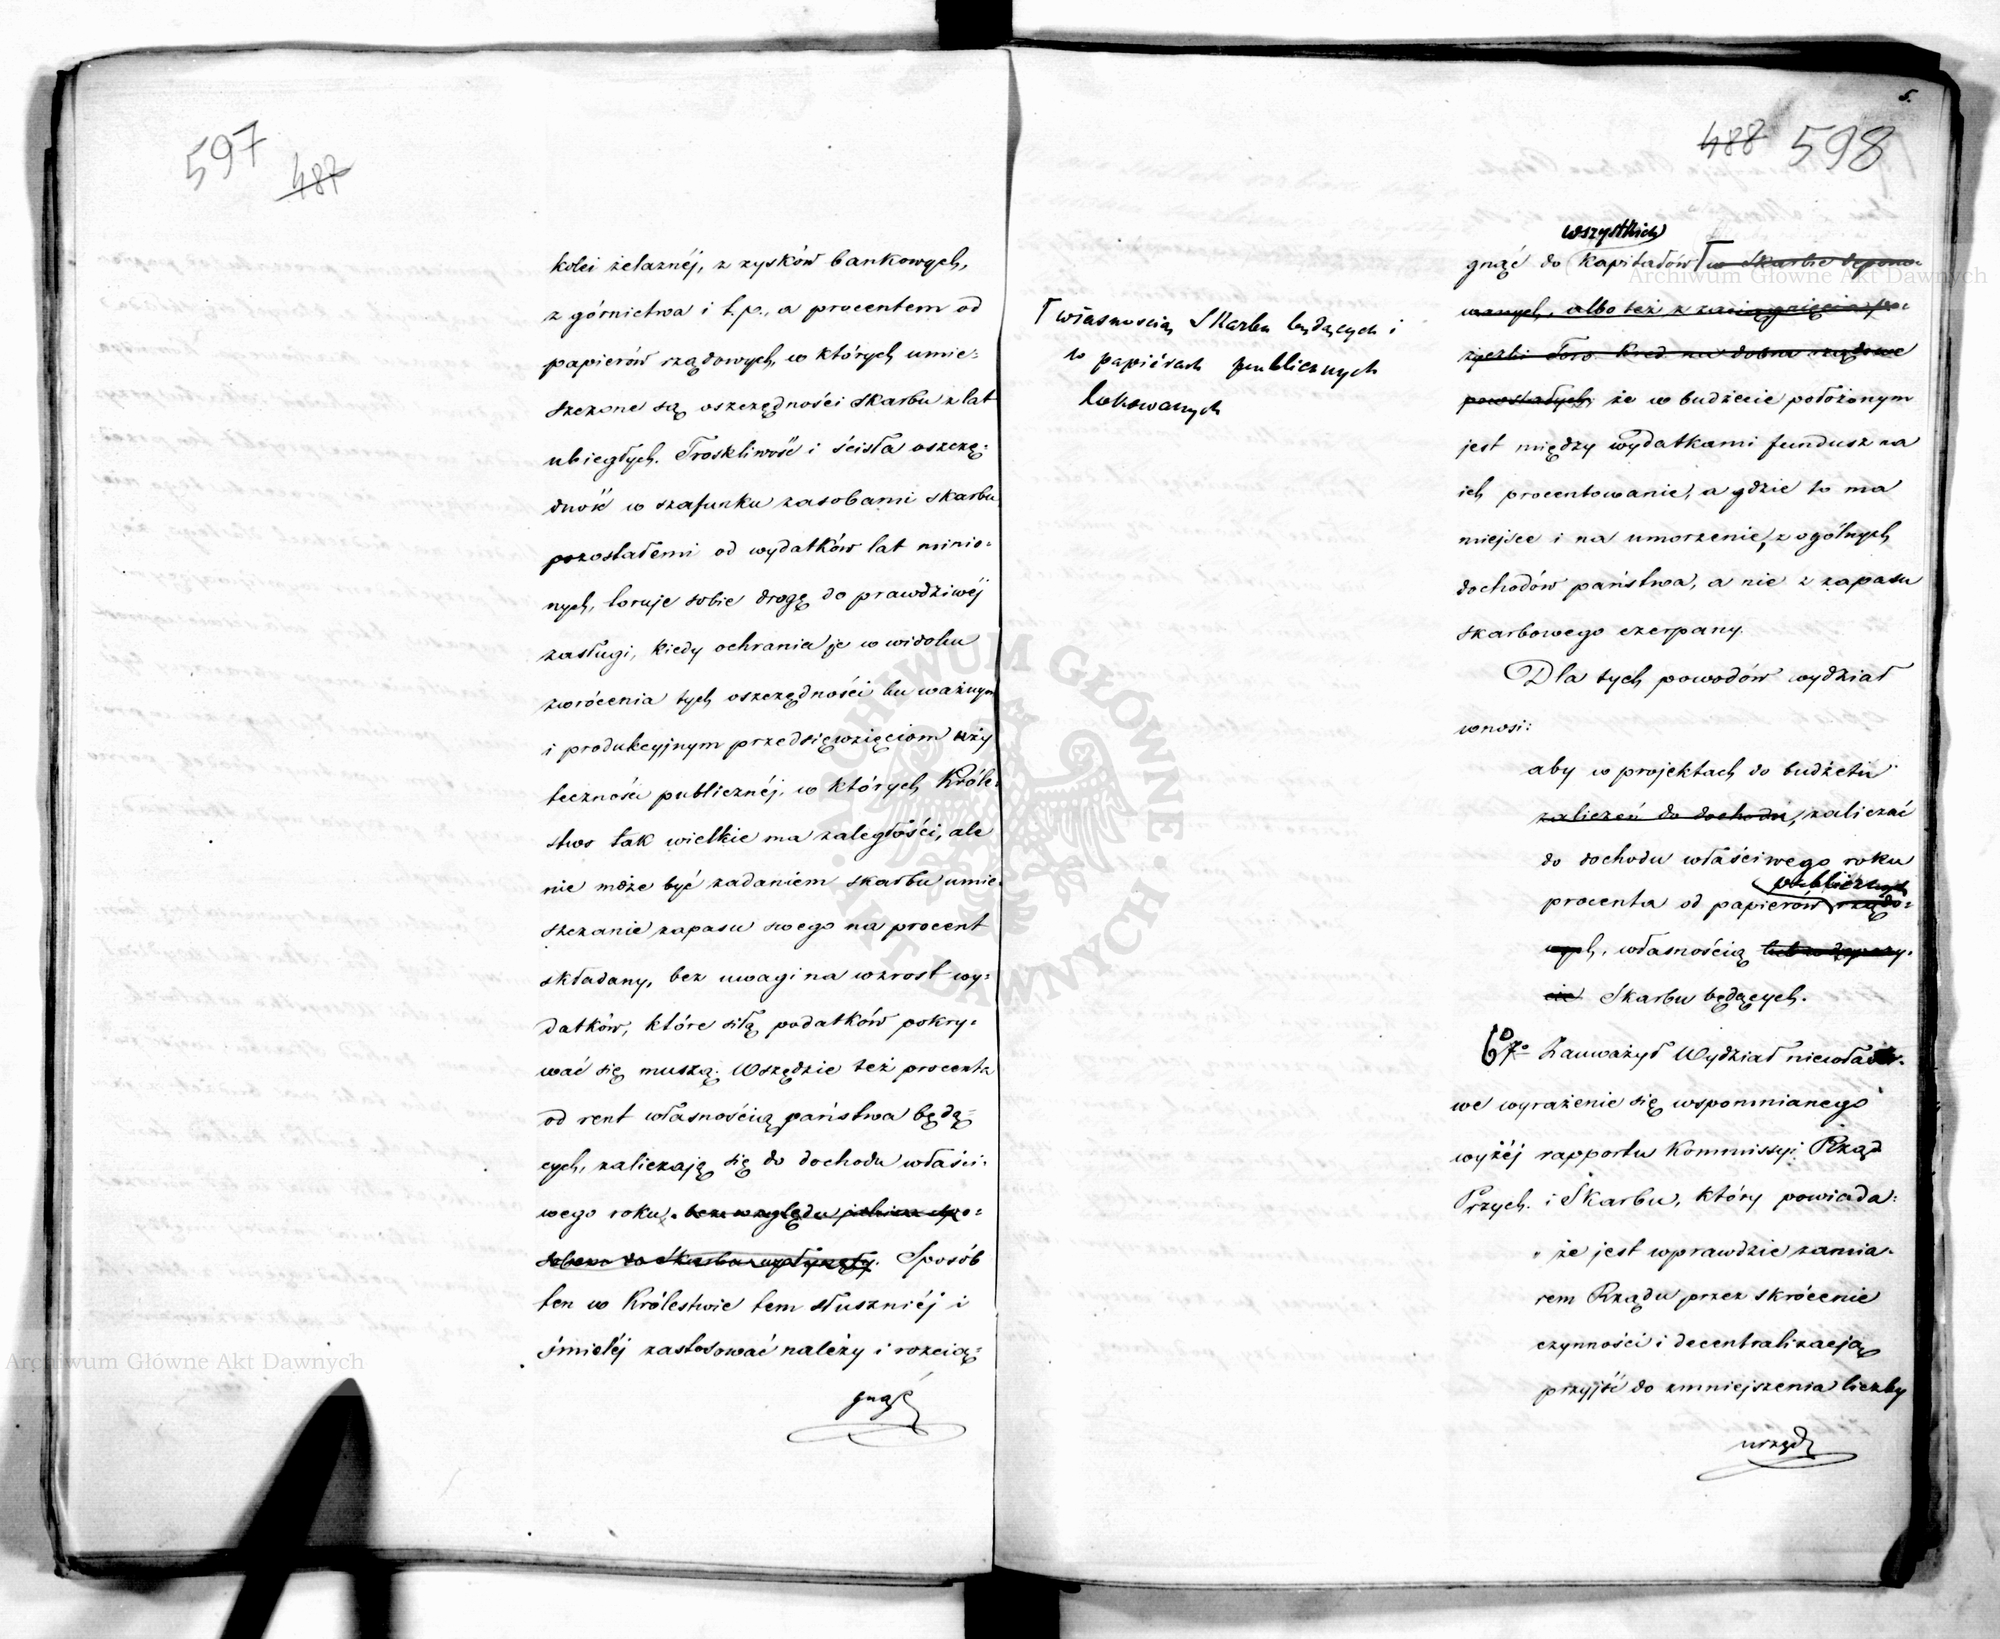 597
487
kolei żelaznéj, z zysków bankowych,
z górnictwa i t.p., a procentem od
papierów rządowych, w których umie-
szczone są oszczędności skarbu z lat
ubiegłych. Troskliwość i ścisła oszczę-
dność w szafunku zasobami skarbu
pozostałemi od wydatków lat minio-
nych, toruje sobie drogę do prawdziwéj
zasługi, kiedy ochrania je w widoku
zwrócenia tych oszczędności ku ważnym
i produkcyjnym przedsięwzięciom uży
teczności publicznéj, w których Króle-
stwo tak wielkie ma zaległości, ale
nie może być zadaniem skarbu umie-
szczanie zapasu swego na procent
składany, bez uwagi na wzrost wy-
datków, które siłą podatków pokry-
wać się muszą. Wszędzie też procenta
od rent własnością państwa będą-
cych, zaliczają się do dochodu właści-
wego roku. bez względu jakim spo-
sobem do Skarbu wpłynęły. Sposób
ten w Królestwie tem słuszniéj i
śmieléj zastosować należy i rozcią-
gnąć
5.
488 598
wszystkich
gnąć do kapitałów w Skarbie depono-
wanych, albo też z zaciągnięcia po-
życzki Tow. Kred. na dobra rządowe
powstałych, że w budżecie położonym
jest między wydatkami fundusz na
ich procentowanie, a gdzie to ma
miejsce i na umorzenie, z ogólnych
dochodów państwa, a nie z zapasu
skarbowego czerpany.
własnością Skarbu będących i
w papiérach publicznych
lokowanych
Dla tych powodów wydział
wnosi:
aby w projektach do budżetu
zaliczeń do dochodu, zaliczać
do dochodu właściwego roku
publicznych
procenta od papierów rządo-
wych, własnością lub w depozy-
cie Skarbu będących.
6º 7º Zauważył Wydział niewłaści-
we wyrażenie się wspomnianego
wyżéj rapportu Kommissyi Rząd
Przych. i Skarbu, który powiada:
„ że jest wprawdzie zamia-
rem Rządu przez skrócenie
czynności i decentralizacją
przyjść do zmniejszenia liczby
urzęd
Archiwum Główne Akt Dawnych
Archiwum Główne Akt Dawnych
ARCHIWUM GŁÓWNE · AKT DAWNYCH ·